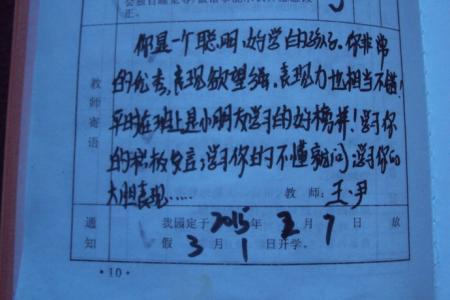 正。
教师寄语
你是一个聪明、好学的孩子。你非常
的优秀,表现欲望强,表现力也相当不错!
平时在班上是小朋友学习的好榜样!学习你
的积极发言;学习你的不懂就问;学习你的
大胆表现……
教师:王、尹
通知
我园定于2015年2月7日放
假3月1日开学。
·10·